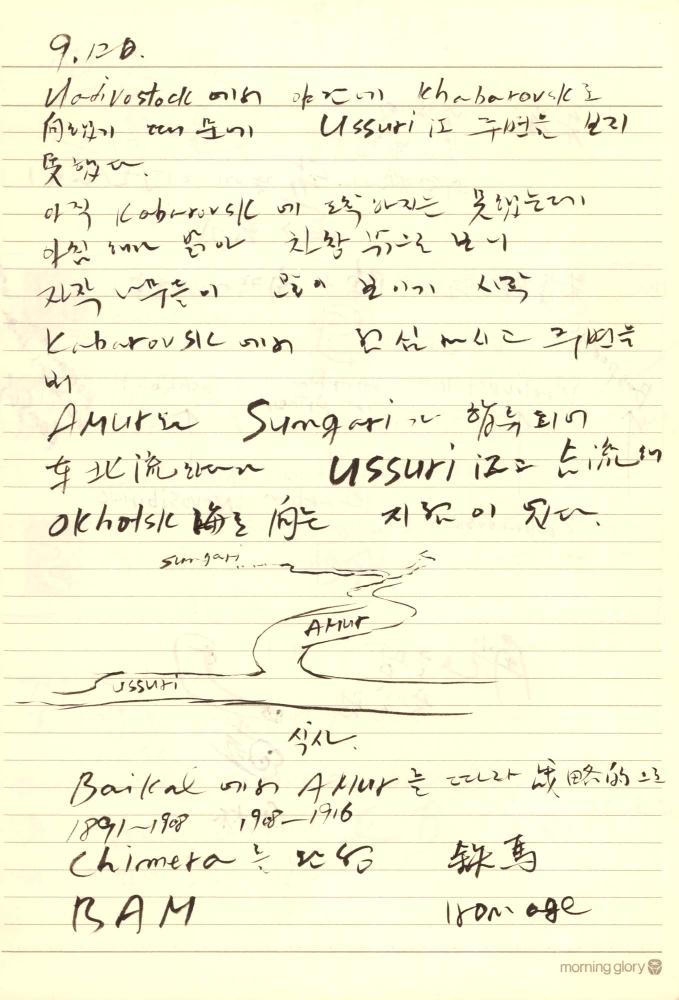 9. 12 日.
Vladivostock 에서 야간에 Khabarovsk로
向했기 때문에 Ussuri 江 주변을 보지
못했다.
아직 Kabarovsk 에 도착하지는 못했는데
아침 해가 밝아 차창 밖으로 보니
자작 나무들이 많이 보이기 시작
Kabarovsk 에서 주변을
AMUR와 Sungari가 합류되어
東北流 하다가 Ussuri 江과 合流해
Okhotsk 海로 向하는 지점이 된다.
Sungari
AMUR
Ussuri
식사.
Baikal 에서 AMUR를 따라 战略的으로
1891~1908 1908-1916
Chimera를 鉄馬
BAM Iron age
morning glory